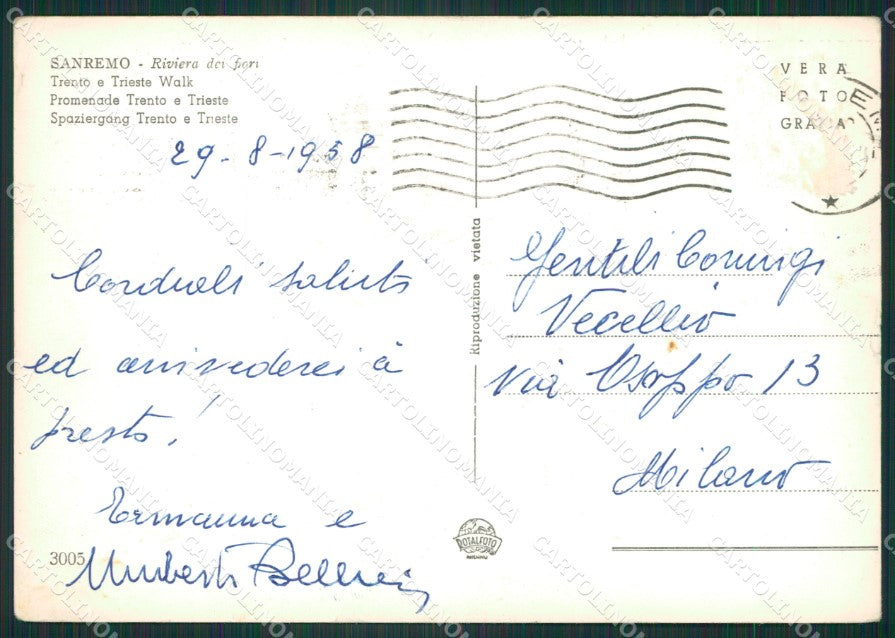 SANREMO - Riviera dei fiori
Trento e Trieste Walk
Promenade Trento e Trieste
Spaziergang Trento e Trieste
29-8-1958
Cordiali saluti
ed arrivederci à
presto!
Ermanna e
Umberto
3005
Riproduzione vietata
VERA
FOTO
GRAFIA
Gentili Coniugi
Vecellio
Via Osoppo 13
Milano
ROTALFOTO
MILANO
CARTOLINOMANIA